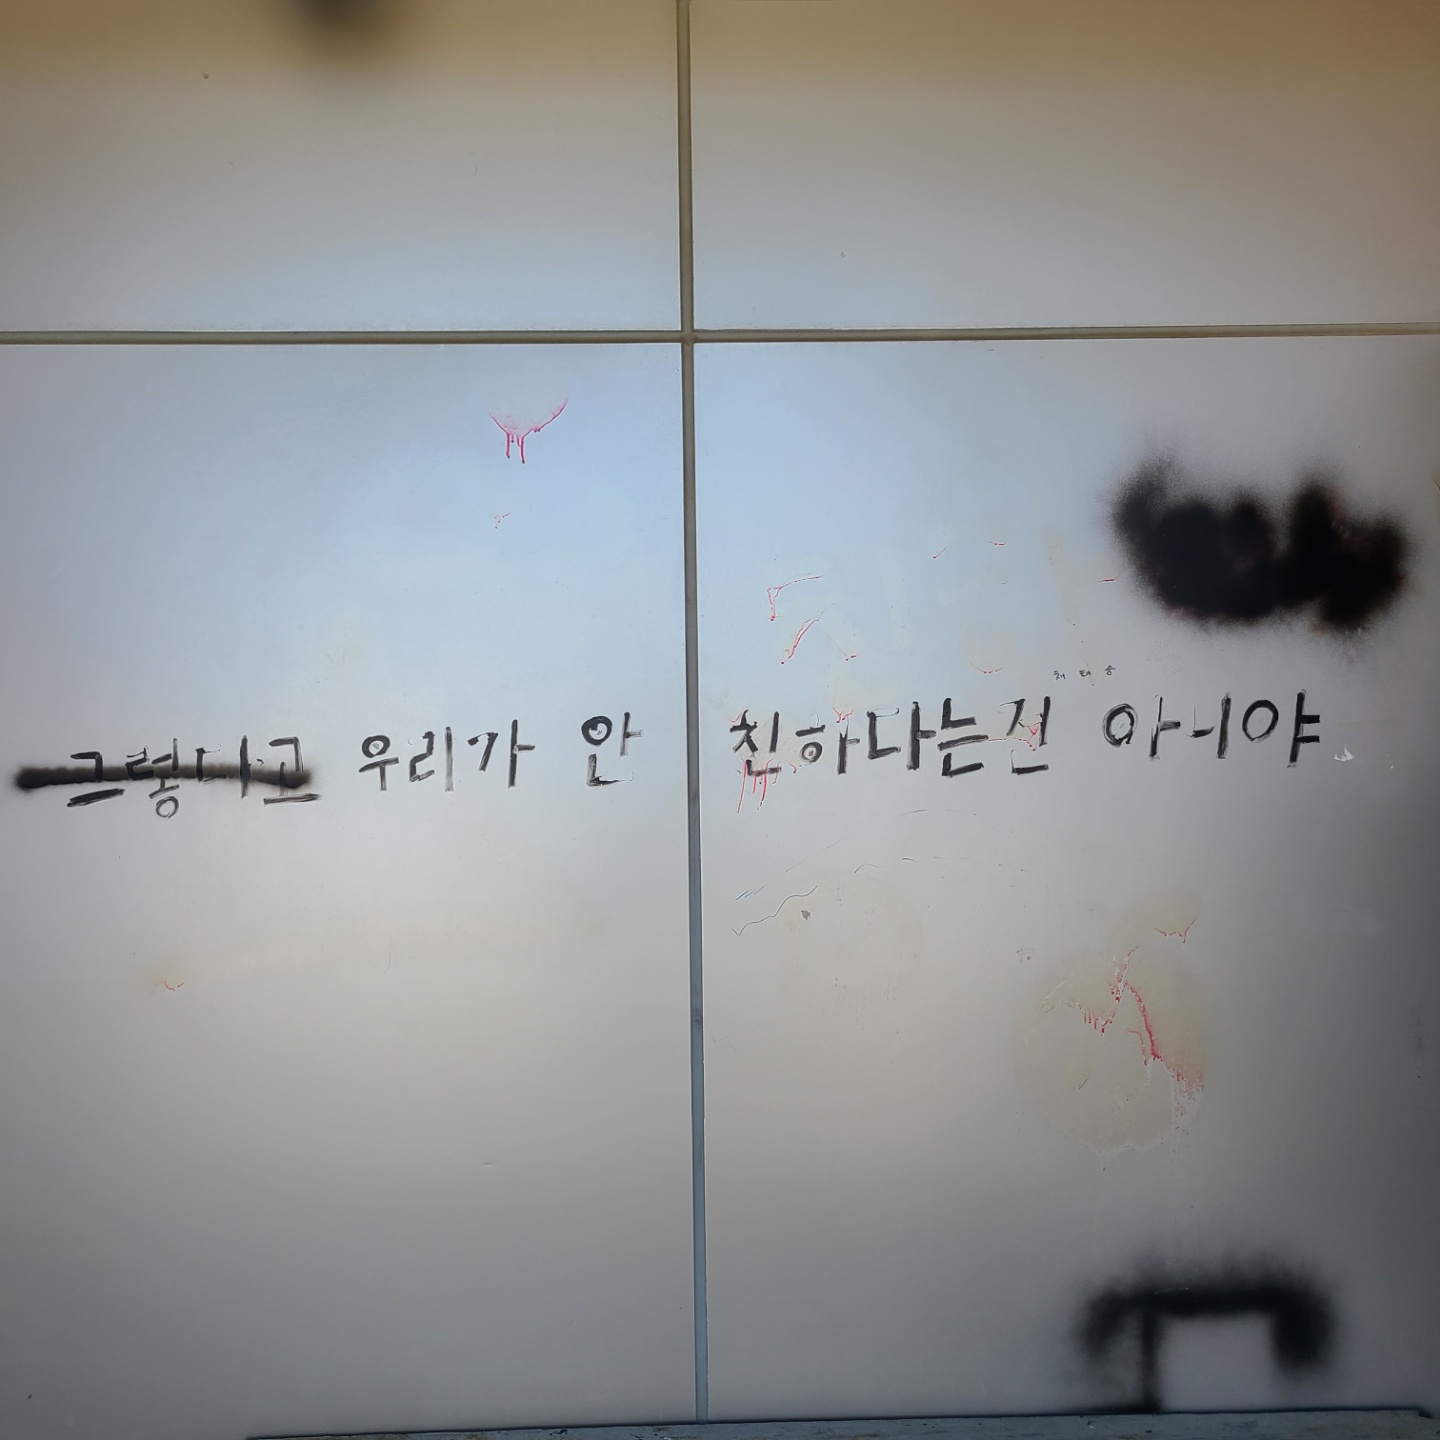 그렇다고 우리가 안 친하다는건 아니야